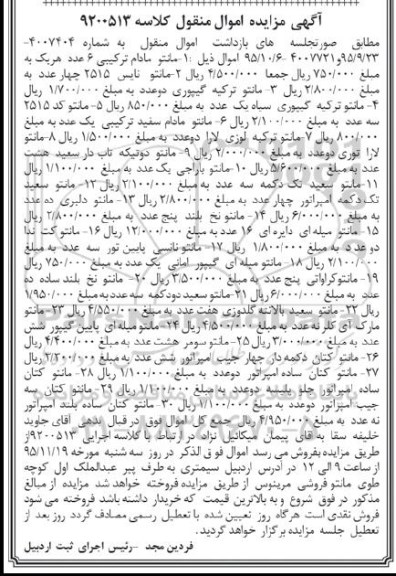 آگهی مزایده اموال منقول کلاسه ۹۲۰۰۵۱۳
مطابق صورتجلسه های بازداشت اموال منقول به شماره ۴۰۰۷۴۰۴-
۹۵/۹/۲۳و۴۰۰۷۷۲۱ -۹۵/۱۰/۶ اموال ذیل :۱-مانتو مادام ترکیبی ۶ عدد هریک به
مبلغ ۷۵۰/۰۰۰ ریال جمعا ۴/۵۰۰/۰۰۰ ریال ۲-مانتو نایس ۲۵۱۵ چهار عدد به
مبلغ ۲/۸۰۰/۰۰۰ ریال ۳- مانتو ترکیه گیپوری دوعدد به مبلغ ۱/۷۰۰/۰۰۰ ریال
۴-مانتو ترکیه گیپوری سیاه یک عدد به مبلغ ۸۵۰/۰۰۰ ریال ۵-مانتو کد ۲۵۱۵
سه عدد به مبلغ ۲/۱۰۰/۰۰۰ ریال ۶- مانتو مادام سفید ترکیبی یک عدد به مبلغ
۸۰۰/۰۰۰ ریال ۷-مانتو ترکیه لوزی لارا دوعدد به مبلغ ۱/۵۰۰/۰۰۰ ریال ۸-مانتو
لارا توری دوعدد به مبلغ ۲/۰۰۰/۰۰۰ ریال ۹- مانتو دوتیکه تاب دار سعید هشت
عدد به مبلغ ۵/۶۰۰/۰۰۰ ریال ۱۰-مانتو باراجی یک عدد به مبلغ ۱/۱۰۰/۰۰۰ ریال
۱۱-مانتو سعید تک دکمه سه عدد به مبلغ ۲/۱۰۰/۰۰۰ ریال ۱۲- مانتو سعید
تک دکمه امپراتور چهار عدد به مبلغ ۲/۸۰۰/۰۰۰ ریال ۱۳-مانتو دلبری ده عدد
به مبلغ ۶/۰۰۰/۰۰۰ ریال ۱۴-مانتو نخ بلند پنج عدد به مبلغ ۲/۸۰۰/۰۰۰ ریال
۱۵-مانتو میله ای دایره ای ۱۶ عدد به مبلغ ۱۲/۰۰۰/۰۰۰ ریال ۱۶-مانتو کت ندا
دو عدد به مبلغ ۱/۸۰۰/۰۰۰ ریال ۱۷- مانتو نانسی پایین تور سه عدد به مبلغ
۲/۱۰۰/۰۰۰ ریال ۱۸- مانتو میله ای گیپور امانی یک عدد به مبلغ ۷۵۰/۰۰۰ ریال
۱۹-مانتو کراواتی پنج عدد به مبلغ ۳/۵۰۰/۰۰۰ ریال ۲۰- مانتو نخ بلند ساده ده
عدد به مبلغ ۶/۰۰۰/۰۰۰ ریال ۲۱-مانتو سعید دودکمه سه عدد به مبلغ ۱/۹۵۰/۰۰۰
ریال ۲۲- مانتو سعید بالاتنه گلدوزی هفت عدد به مبلغ ۴/۵۵۰/۰۰۰ ریال ۲۳-مانتو
مارک آی کلر نه عدد به مبلغ ۴/۵۰۰/۰۰۰ ریال ۲۴- مانتو میله ای پایین گیپور شش
عدد به مبلغ ۳/۰۰۰/۰۰۰ ریال ۲۵- مانتو سومر هشت عدد به مبلغ ۴/۴۰۰/۰۰۰ ریال
۲۶- مانتو کتان دکمه دار چهار جیب امپراتور شش عدد به مبلغ ۳/۳۰۰/۰۰۰ ریال
۲۷- مانتو کتان ساده امپراتور دوعدد به مبلغ ۱/۱۰۰/۰۰۰ ریال ۲۸- مانتو کتان
ساده امپراتور جلو پلیسه دوعدد به مبلغ ۱/۱۰۰/۰۰۰ ریال ۲۹- مانتو کتان سه
جیب امپراتور دوعدد به مبلغ ۱/۱۰۰/۰۰۰ ریال ۳۰- مانتو کتان ساده بلند امپراتور
نه عدد به مبلغ ۴/۹۵۰/۰۰۰ ریال جمع کل اموال فوق در قبال بدهی آقای جاوید
خلیفه سقا به آقای پیمان میکائیل نژاد در ارتباط با کلاسه اجرایی ۹۲۰۰۵۱۳ از
طریق مزایده بفروش می رسد اموال فوق الذکر در روز سه شنبه مورخه ۹۵/۱۱/۱۹
از ساعت ۹ الی ۱۲ در آدرس اردبیل سیمتری به طرف پیر عبدالملک اول کوچه
طوی مانتو فروشی مرینوس از طریق مزایده فروخته خواهد شد مزایده از مبالغ
مذکور در فوق شروع و به بالاترین قیمت که خریدار داشته باشد فروخته می شود
فروش نقدی است هرگاه روز تعیین شده با تعطیل رسمی مصادف گردد روز بعد از
تعطیل جلسه مزایده برگزار خواهد گردید.
فردین مجد -رئیس اجرای ثبت اردبیل